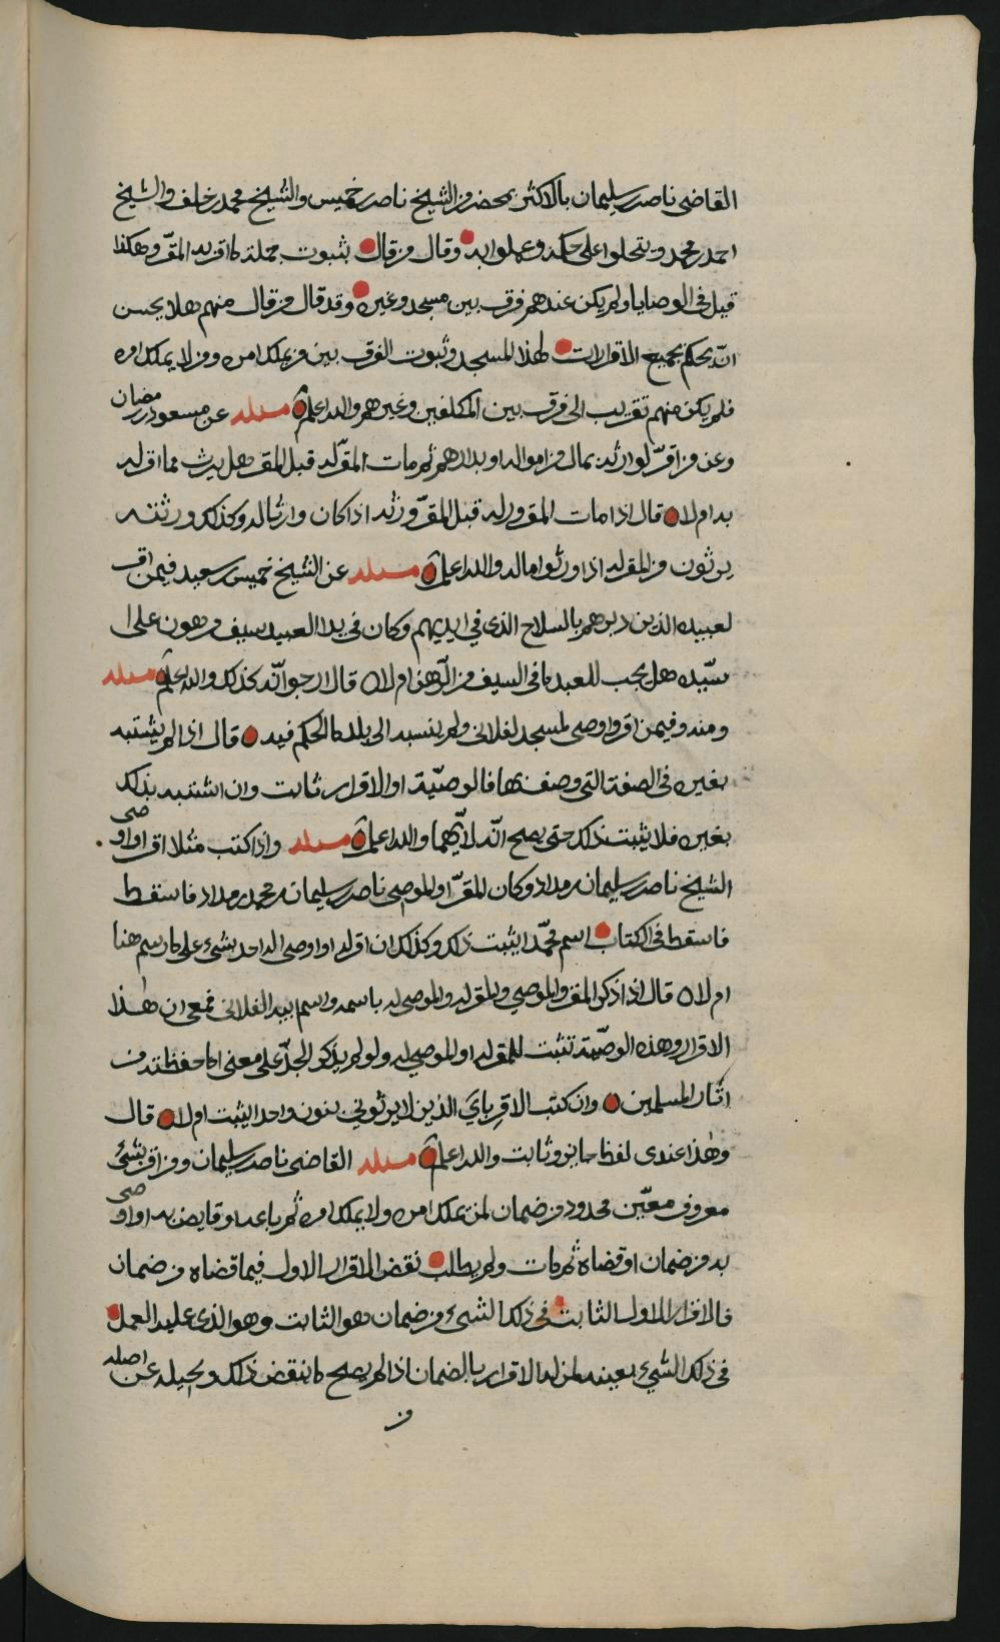 القاضي ناصر بن سليمان بالاكثر بمحضر من الشيخ ناصر بن خميس والشيخ محمد بن خلف والشيخ
احمد بن محمد و على حكمه وعملوا به وقال من قال بثبوت جملة ما اقر به المقر وهكذا
قيل في الوصايا ولم يكن عندهم فرق بين مسجد وغيره وقد قال من قال منهم هلا يحسن
انه يحكم بجميع الاقرارات لهذا المسجد وثبوت الفرق بين من يملك امره ومن لا يملك امره
فلم يكن منهم تقريب الى فرق بين المكلفين وغيرهم والله اعلم مسئلة عن مسعود بن رمضان
وعن من اقر لوارثه بمال من امواله او بدراهم ثم مات المقر له قبل المقر هل يرث مما اقر له
به ام لا قال اذا مات المقرور له قبل المقر ورثه اذا كان وارثا له وكذلك ورثته
يرثون من المقر له اذا ورثوا ماله والله اعلم مسئلة عن الشيخ خميس بن سعيد فيمن اقر
لعبيده الذين دبرهم بالسلاح الذي في ايديهم وكان في يد العبيد سيف مرهون على
سيده هل يجب للعبد ما في السيف من الرهن ام لا قال ارجو انه كذلك والله اعلم مسئلة
ومنه وفيمن اقر واوصى لمسجد لفلاني ولم ينسبه الى بلد ما الحكم فيه قال اذا لم يشتبه
بغيره في الصفة التي وصف بها فالوصية او الاقرار ثابت وان اشتبه بذلك
بغيره فلا يثبت ذلك حتى يصح انه لايهما والله اعلم مسئلة واذا كتب مثلا اقر او اوصى
الشيخ ناصر بن سليمان بن مداد وكان المقر او الموصي ناصر بن سليمان بن محمد بن مداد فاسقط
فاسقط في الكتاب اسم محمد ايثبت ذلك وكذلك ان اقر له او اوصى له احد بشيء على ما رسم هنا
ام لا قال اذا ذكر المقر والموصي والمقر له والموصى له باسمه واسم ابيه الفلاني فمعي ان هذا
الاقرار وهذه الوصية تثبت للمقر له او للموصى له ولو لم يذكر الجد على معنى ما حفظته من
اثار المسلمين وان كتب الاقرباي الذين لا يرثوني بنون واحد ايثبت ام لا قال
وهذا عندي لفظ جايز وثابت والله اعلم مسئلة القاضي ناصر بن سليمان ومن اقر بشيء
معروف معين محدود من ضمان لمن يملك امره ولا يملك امره ثم باعه او قايض به او اوصى
به من ضمان او قضاه ثم مات ولم يطالب نقض الاقرار الاول فيما قضاه من ضمان
فالاقرار الاول الثابت في ذلك الشيء من ضمان هو الثابت وهو الذي عليه العمل
في ذلك الشيء بعينه لمن له الاقرار بالضمان اذا لم يصح ما ينقض ذلك ويحيله عن اصله
من